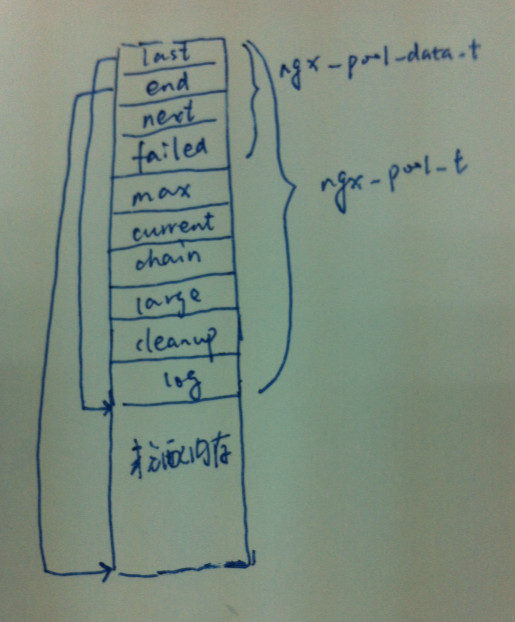 last
end
next
failed
max
current
chain
large
cleanup
log
未分配内存
ngx_pool_data_t
ngx_pool_t